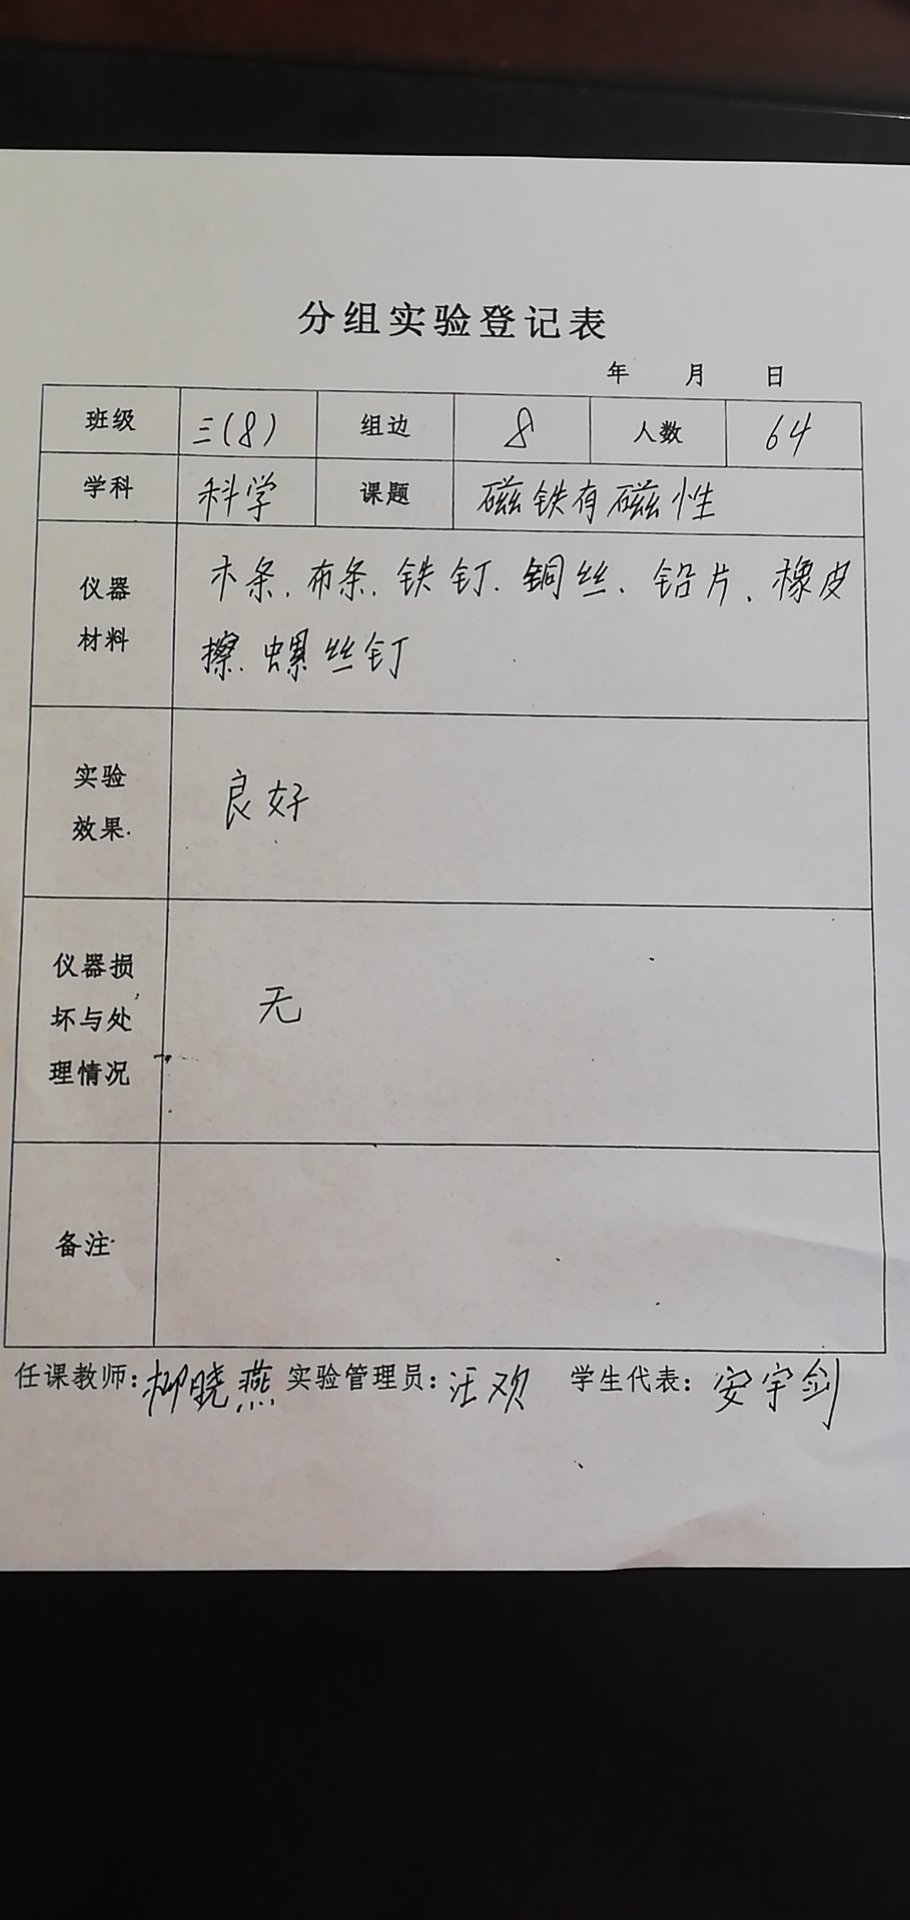 分组实验登记表
年 月 日
班级 三(8) 组边 8 人数 64
学科 科学 课题 磁铁有磁性
仪器 木条、布条、铁钉、铜丝、铅片、橡皮
材料 擦、螺丝钉
实验
效果 良好
仪器损
坏与处 无
理情况
备注
任课教师:柳晓燕 实验管理员:汪欢 学生代表:安宇剑